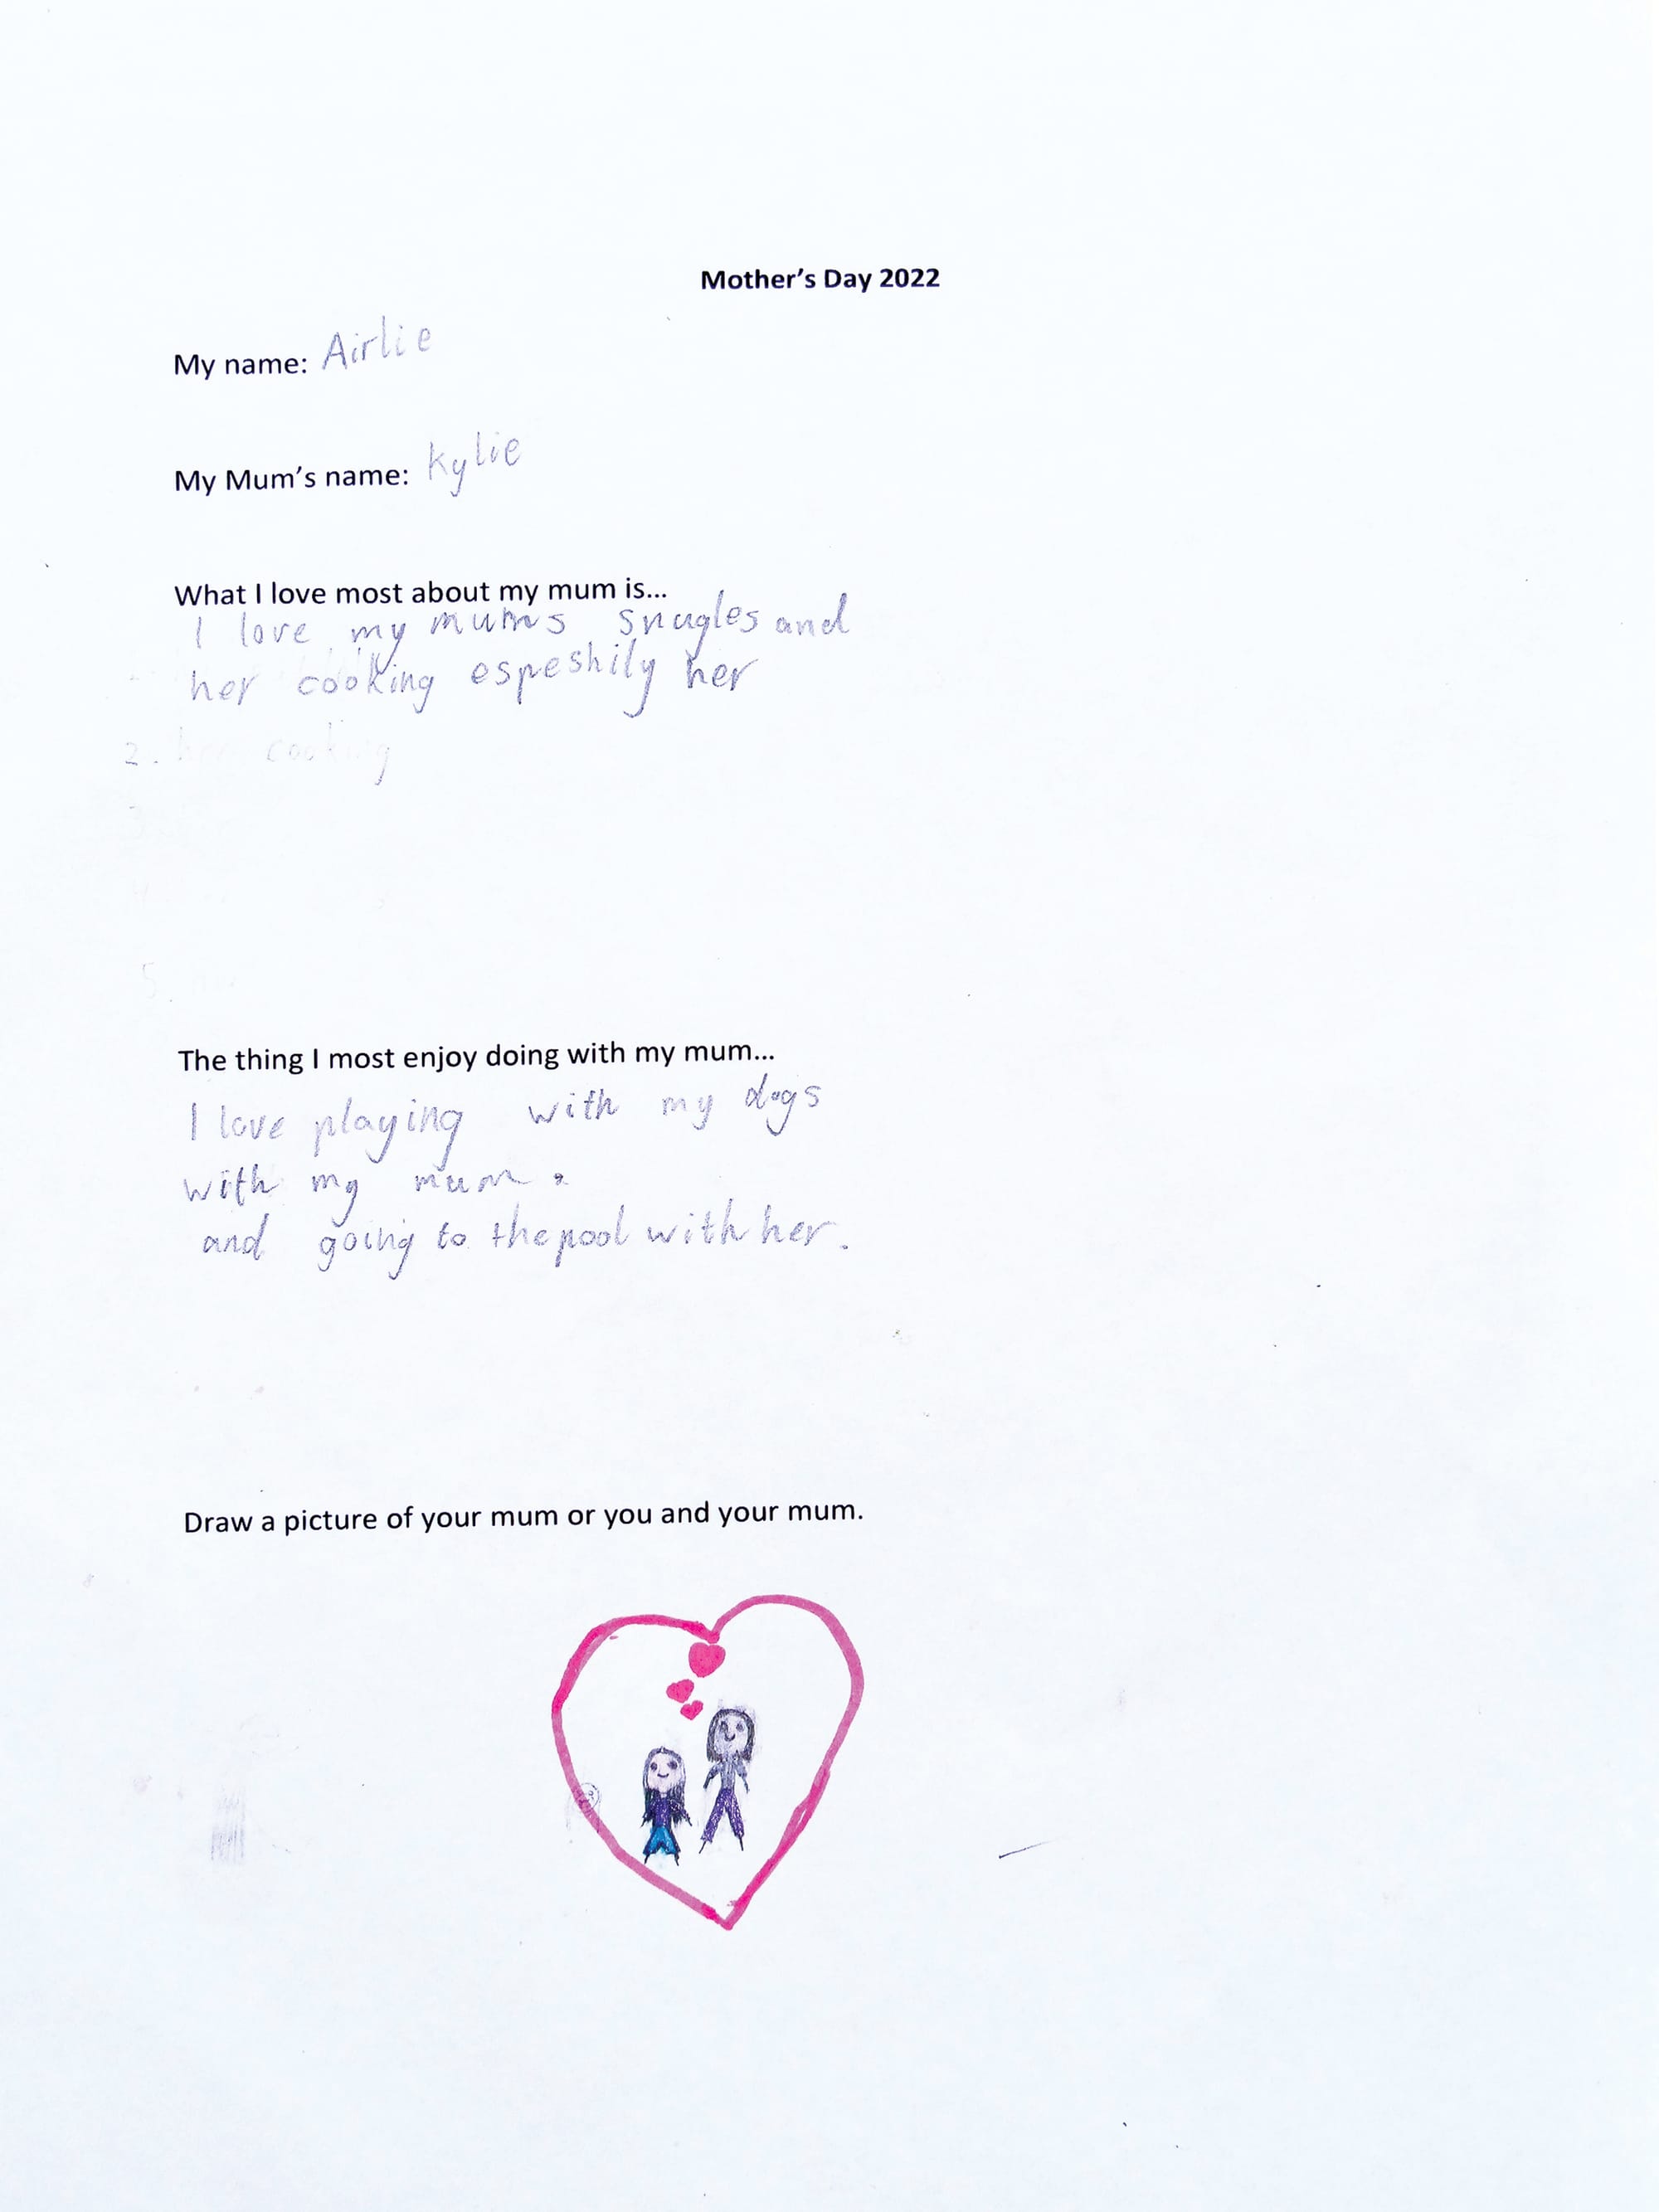 Mother's Day 2022
My name: Airlie
My Mum's name: Kylie
What I love most about my mum is...
I love my mums snugles and
her cooking espeshily her
2. her cooking
3.
5.
The thing I most enjoy doing with my mum...
I love playing with my dogs
with my mum.
and going to the pool with her.
Draw a picture of your mum or you and your mum.